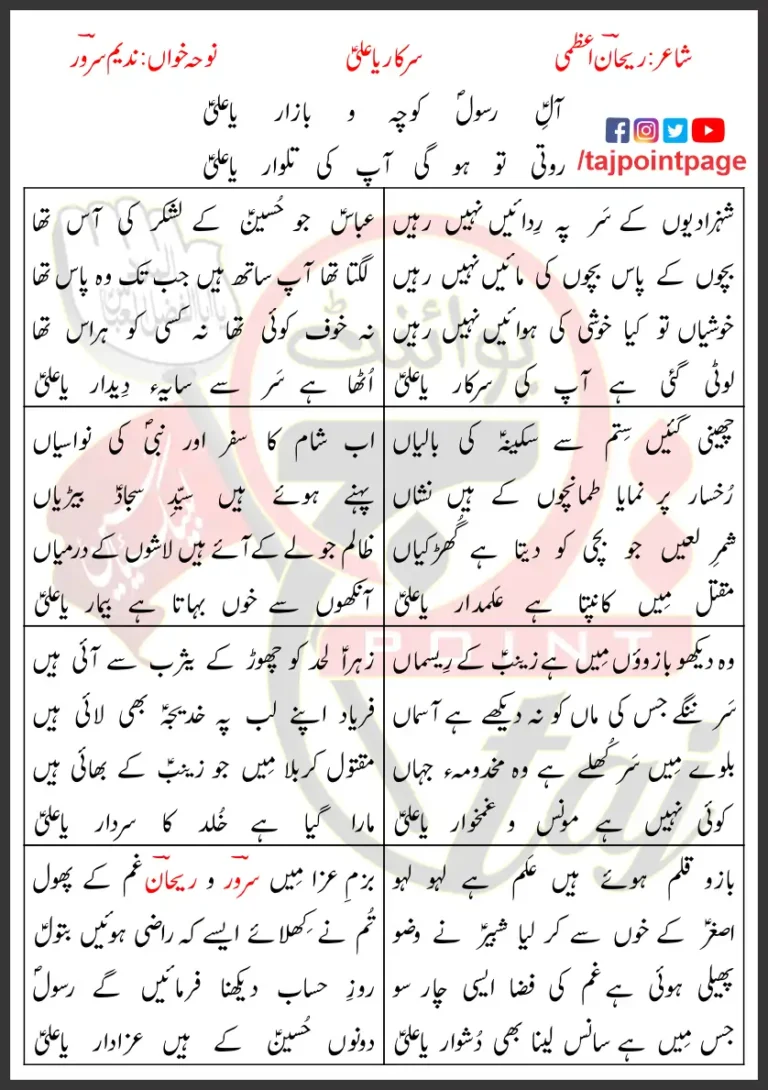 شاعر: ریحان اعظمی
سرکار یا علیؑ
نوحہ خواں: ندیم سرور
آلِؑ رسولؐ کوچہ و بازار یا علیؑ
روتی تو ہو گی آپ کی تلوار یا علیؑ
/tajpointpage
شہزادیوں کے سَر پہ رِدائیں نہیں رہیں
بچوں کے پاس بچوں کی مائیں نہیں رہیں
خوشیاں تو کیا خوشی کی ہوائیں نہیں رہیں
لوٹی گئی ہے آپ کی سرکار یا علیؑ
عباسؑ جو حُسینؑ کے لشکر کی آس تھا
لگتا تھا آپ ساتھ ہیں جب تک وہ پاس تھا
نہ خوف کوئی تھا نہ کسی کو ہراس تھا
اُٹھا ہے سَر سے سایہء دِیدار یا علیؑ
چھینی گئیں سِتم سے سکینہؑ کی بالیاں
رُخسار پر نمایا طمانچوں کے ہیں نشاں
شمرِ لعیں جو بچی کو دیتا ہے گُھڑکیاں
مقتل مِیں کانپتا ہے عَلمدار یا علیؑ
اب شام کا سفر اور نبیؐ کی نواسیاں
پہنے ہوئے ہیں سیّدِ سجادؑ بیڑیاں
ظالم جو لے کے آئے ہیں لاشوں کے درمیاں
آنکھوں سے خوں بہاتا ہے بیمار یا علیؑ
وہ دیکھو بازوؤں مِیں ہے زینبؑ کے رِیسماں
سَر ننگے جس کی ماں کو نہ دیکھے ہے آسماں
بلوے مِیں سَر کُھلے ہے وہ مخدومہء جہاں
کوئی نہیں ہے مونس و غمخوار یا علیؑ
زہراؑ لحد کو چھوڑ کے یثرب سے آئی ہیں
فریاد اپنے لب پہ خدیجہؑ بھی لائی ہیں
مقتول کربلا مِیں جو زینبؑ کے بھائی ہیں
مارا گیا ہے خُلد کا سردار یا علیؑ
بازو قلم ہوئے ہیں عَلم ہے لہو لہو
اصغرؑ کے خوں سے کر لیا شبیرؑ نے وضو
پھیلی ہوئی ہے غم کی فضا ایسی چار سو
جس مِیں ہے سانس لینا بھی دُشوار یا علیؑ
بزمِ عزا مِیں سرور و ریحان غم کے پھول
تُم نے کِھلائے ایسے کہ راضی ہوئیں بتولؑ
روزِ حساب دیکھنا فرمائیں گے رسولؐ
دونوں حُسینؑ کے ہیں عزادار یا علیؑ
پوائنٹ
تاج
POINT
taj